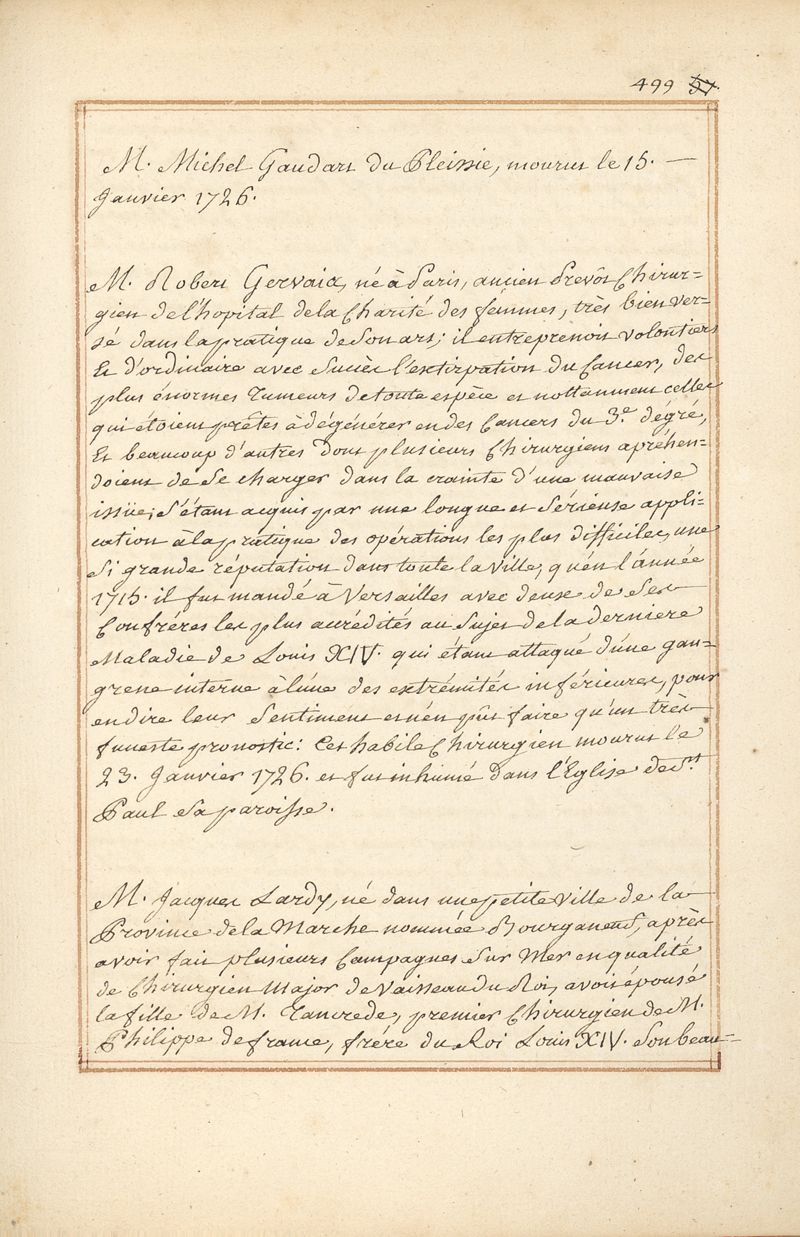 499 57.
M. Michel Gaudart du Pleissie, mourut le 15. —
Janvier 1726.
M. Robert Gervaix, né à Paris, ancien Prevôt Chirur=
gien de l'hopital de la Charité des femmes, très bien ver=
sé dans la pratique de Son art; il entreprenoit volontiers
Et d'ordinaire avec Succès l'extirpation du Cancer, des
plus énormes Tumeurs de toute espèce et nottamment celles
qui étoient prêtes à dégénérer en des Cancers du 3.e dégré,
Et beaucoup d'autres dont plusieurs Chirurgiens apréhen=
doient de Se charger dans la crainte d'une mauvaise
issüe; S'étant acquis par une longue et Sérieuse appli=
cation à la pratique des opérations les plus difficiles, une
Si grande réputation dans toute la Ville, qu'en l'année
1715. il fut mandé à Versailles avec deux de Ses
Confréres les plus accrédités au Sujet de la derniere
Maladie de Louis XIV. qui étant attaqué d'une gan=
grene interne à l'une des extrémités inférieures, pour
en dire leur Sentiment et n'en pût faire qu'un très
funeste pronostic: Cet habile Chirurgien mourut le
23. Janvier 1726. et fut inhumé dans l'Eglise de St
Paul Sa paroisse.
M. Jacques Lardy, né dans une petite Ville de la
Province de la Marche nommée Bourganeuf, après
avoir fait plusieurs Campagnes Sur Mer en qualité
de Chirurgien Major de Vaisseau du Roi, avoit épousé
la fille de M. Tancrede, premier Chirurgien de M.
Philippe de france, frére du Roi Louis XIV. Son beau=